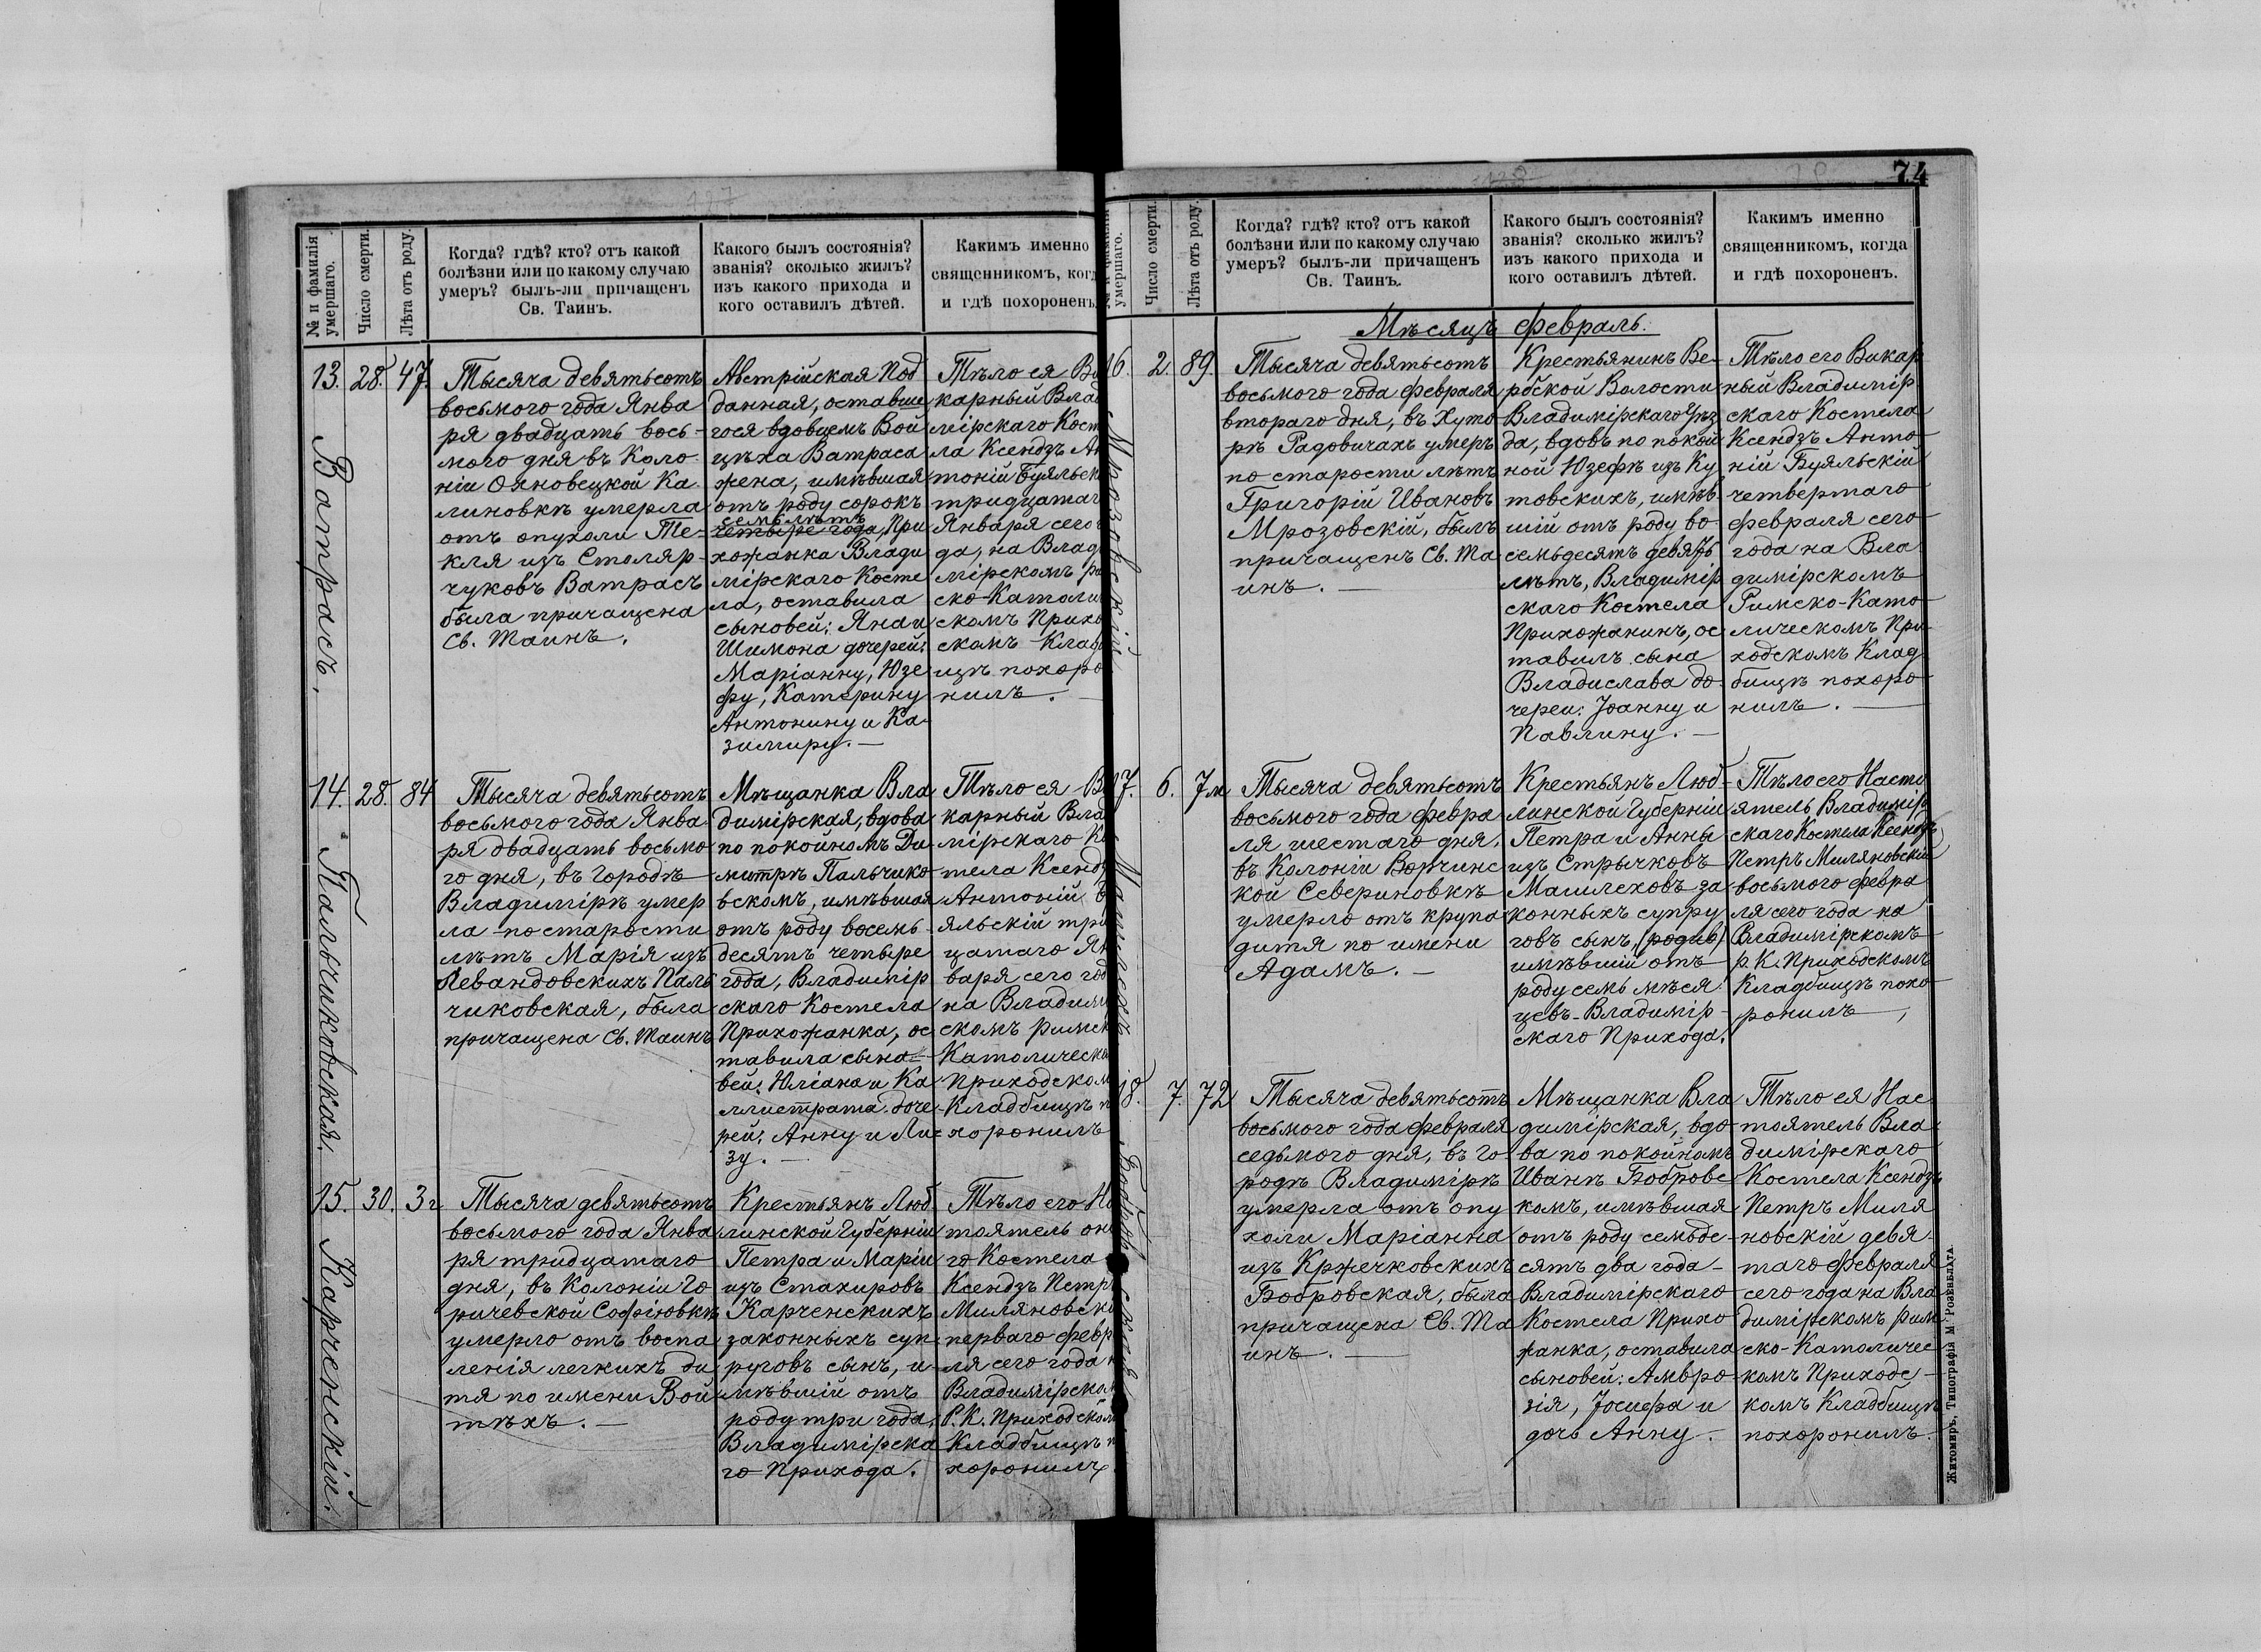 74
№ и фамилія
умершаго.
Число смерти.
Лѣта отъ роду.
Когда? гдѣ? кто? отъ какой
болѣзни или по какому случаю
умеръ? былъ-ли причащенъ
Св. Таинъ.
Какого былъ состоянія?
званія? сколько жилъ?
изъ какого прихода и
кого оставилъ дѣтей.
Какимъ именно
священникомъ, когд
и гдѣ похороненъ.
13.
Ватрасъ.
28.
47.
Тысяча девятьсотъ
восьмого года Янва
ря двадцать вось-
мого дня въ Коло
ніи Ояновецкой Ка
линовкѣ умерла
отъ опухоли Те-
кля изъ Столяр-
чуковъ Ватрасъ
была причащена
Св. Таинъ.
Австрійская Под
данная, оставше
гося вдовцемъ Вой
цѣха Ватраса
жена, имѣвшая
отъ роду сорокъ
семь лѣтъ
четыре года, При
хожанка Влади
мірскаго Косте
ла, оставила
сыновей: Яна и
Шимона дочерей:
Маріанну, Юзе
фу, Катерину
Антонину и Ка-
зимиру. —
Тѣло ея Ви
карный Влад
мірскаго Кост
ла Ксендзъ Ан
тоній Буяльск
тридцатаг
Января сего
да, на Влад
мірскомъ р
ско-Католи
скомъ Прихо
скомъ Кладб
щѣ похоро
нилъ. —
14.
Пальчиковская.
28.
84
Тысяча девятьсотъ
восьмого года Янва-
ря двадцать восьмо
го дня, въ Городѣ
Владимірѣ умер
ла по старости
лѣтъ Марія изъ
Левандовскихъ Паль
чиковская, была
причащена Св. Таинъ
Мѣщанка Вла
димірская, вдова
по покойномъ Ди
митрѣ Пальчико
вскомъ, имѣвшая
отъ роду восемь
десятъ четыре
года, Владимір
скаго Костела
Прихожанка, ос
тавила сына-
вей: Юліана и Ка
ллистрата доче
рей: Анну и Ли-
зу. —
Тѣло ея В
карный Влад
мірскаго Ко
тела Ксендз
Антоній Б
яльскій три
цатаго Ян
варя сего год
на Владимі
скомъ римск
Католическо
Приходском
Кладбищѣ п
хоронилъ
15.
Карченскій.
30.
3 г
Тысяча девятьсотъ
восьмого года Янва
ря тридцатаго
дня, въ Колоніи Го
ричевской Софіювкѣ
умерло отъ воспа
ленія легкихъ ди
тя по имени Вой
тѣхъ. —
Крестьянъ Люб
линской Губерніи
Петра и Маріи
изъ Стахировъ
Карченскихъ
законныхъ суп
руговъ сынъ, и-
мѣвшій отъ
роду три года,
Владимірска
го Прихода.
Тѣло его На
тоятель он
го Костела
Ксендзъ Петр
Миляновск
перваго февр
ля сего года н
Владимірском
Р. К. Приходском
Кладбищѣ п
хоронилъ
умершаго.
Число смерти.
Лѣта отъ роду.
Когда? гдѣ? кто? отъ какой
болѣзни или по какому случаю
умеръ? былъ-ли причащенъ
Св. Таинъ.
Какого былъ состоянія?
званія? сколько жилъ?
изъ какого прихода и
кого оставилъ дѣтей.
Какимъ именно
священникомъ, когда
и гдѣ похороненъ.
Мѣсяцъ февраль.
16.
Мрозовскій
2.
89.
Тысяча девятьсотъ
восьмого года февраля
втораго дня, въ Хуто
рѣ Радовичахъ умеръ
по старости лѣтъ
Григорій Ивановъ
Мрозовскій, былъ
причащенъ Св. Та
инъ. —
Крестьянинъ Ве-
рбской Волости
Владимірскаго Уѣз
да, вдовъ по покой
ной Юзефѣ изъ Ку
товскихъ, имѣв
шій отъ роду во
семьдесятъ девять
лѣтъ, Владимір
скаго Костела
Прихожанинъ, ос
тавилъ сына
Владислава до
череи: Іоанну и
Павлину. —
Тѣло его Викар
ный Владимір
скаго Костела
Ксендзъ Анто
ній Буяльскій
четвертаго
февраля сего
года на Вла
димірскомъ
Римско-Като
лическомъ При
ходскомъ Клад
бищѣ похоро
нилъ. —
17.
Машлехъ
6.
7 м
Тысяча девятьсотъ
восьмого года февра
ля шестаго дня,
въ Колоніи Ворчинс
кой Севериновкѣ
умерло отъ крупа
дитя по имени
Адамъ. —
Крестьянъ Люб-
линской Губерніи
Петра и Анны
изъ Стрычковъ
Машлеховъ за
конныхъ супру
говъ сынъ, (родив)
имѣвшій отъ
роду семь мѣся
цевъ - Владимір-
скаго Прихода.
Тѣло его Насто
ятель Владимір
скаго Костела Ксендзъ
Петръ Миляновскій
восьмого февра
ля сего года на
Владимірскомъ
р. К. Приходскомъ
Кладбищѣ похо
ронилъ,
18.
Бобровская
7.
72
Тысяча девятьсотъ
восьмого года февраля
седьмого дня, въ Го
родѣ Владимірѣ
умерла отъ опу
холи Маріанна
изъ Кржечковскихъ
Бобровская, была
причащена Св. Та
инъ. —
Мѣщанка Вла
димірская, вдо
ва по покойномъ
Иванѣ Бобровс
комъ, имѣвшая
отъ роду семьде-
сятъ два года -
Владимірскаго
Костела Прихо
жанка, оставила
сыновей: Амвро
зія, Іосифа и
дочь Анну.
Тѣло ея Нас
тоятель Вла
димірскаго
Костела Ксендзъ
Петръ Миля
новскій девя
таго февраля
сего года на Вла
димірскомъ рим
ско-Католичес
комъ Приходс
комъ Кладбищѣ
похоронилъ.
Житомиръ, Типографія М. Розенблата